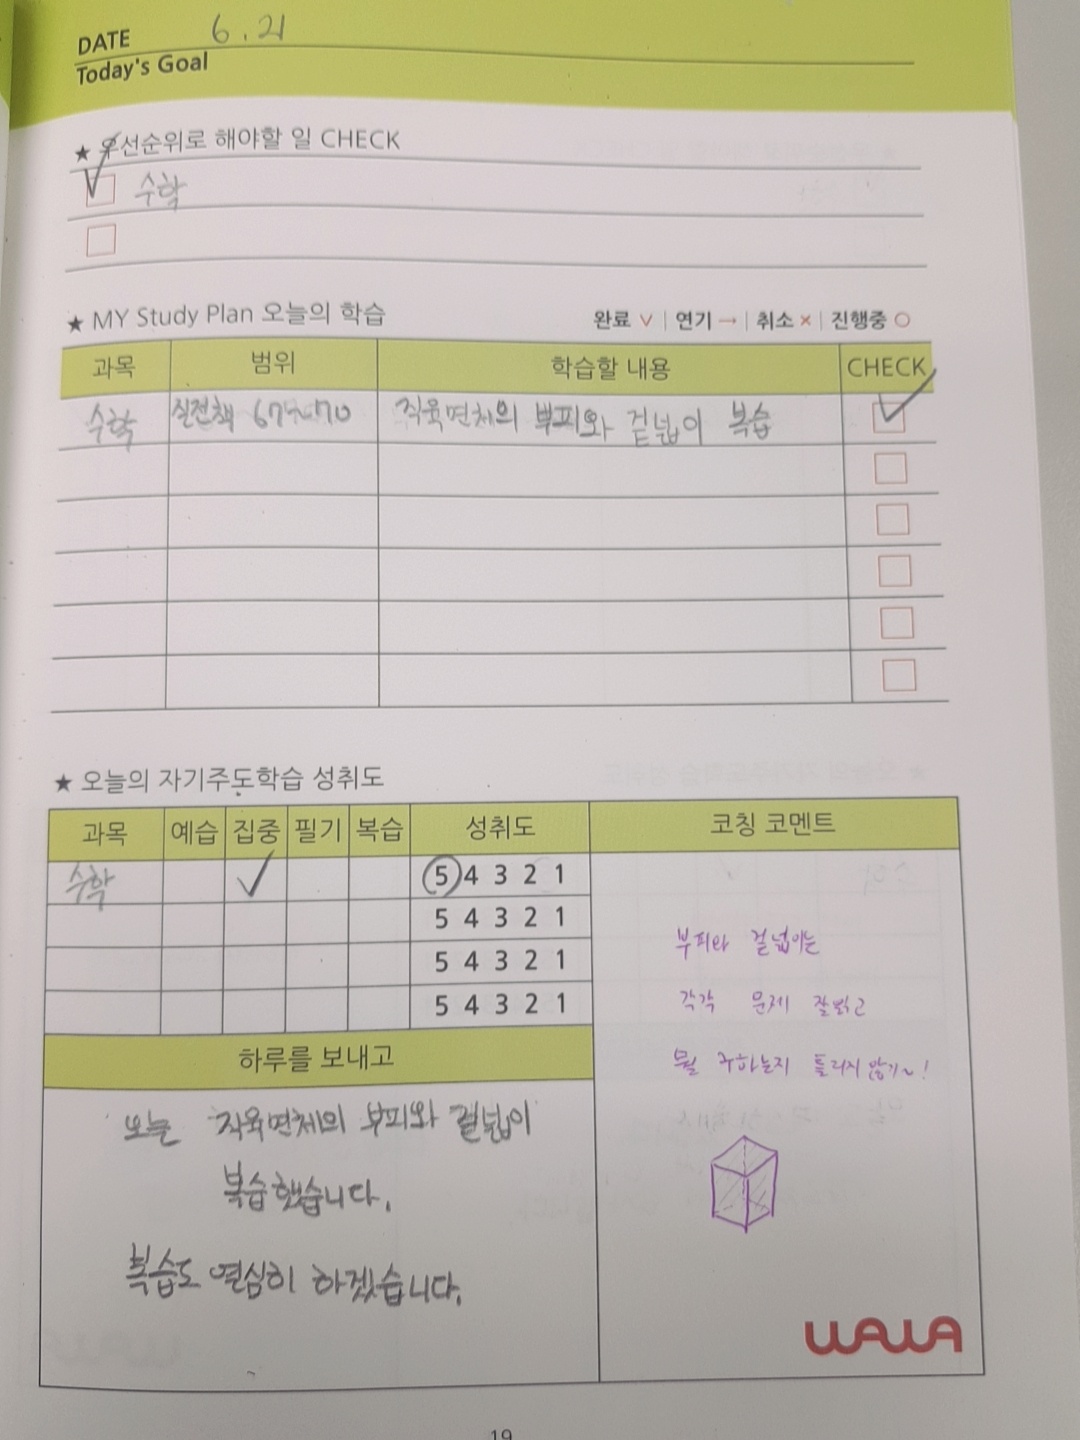 DATE 6.21
Today's Goal
★ 우선순위로 해야할 일 CHECK
수학
★ MY Study Plan 오늘의 학습 완료 ∨ | 연기 → | 취소 × | 진행중 ○
과목 범위 학습할 내용 CHECK
수학 실전책 67~70 직육면체의 부피와 겉넓이 복습
★ 오늘의 자기주도학습 성취도
과목 예습 집중 필기 복습 성취도 코칭 코멘트
수학 5 4 3 2 1
5 4 3 2 1
5 4 3 2 1
5 4 3 2 1
부피와 겉넓이는
각각 문제 잘읽고
뭘 구하는지 틀리지 않기~!
하루를 보내고
오늘 직육면체의 부피와 겉넓이
복습했습니다.
복습도 열심히 하겠습니다.
WAWA
19